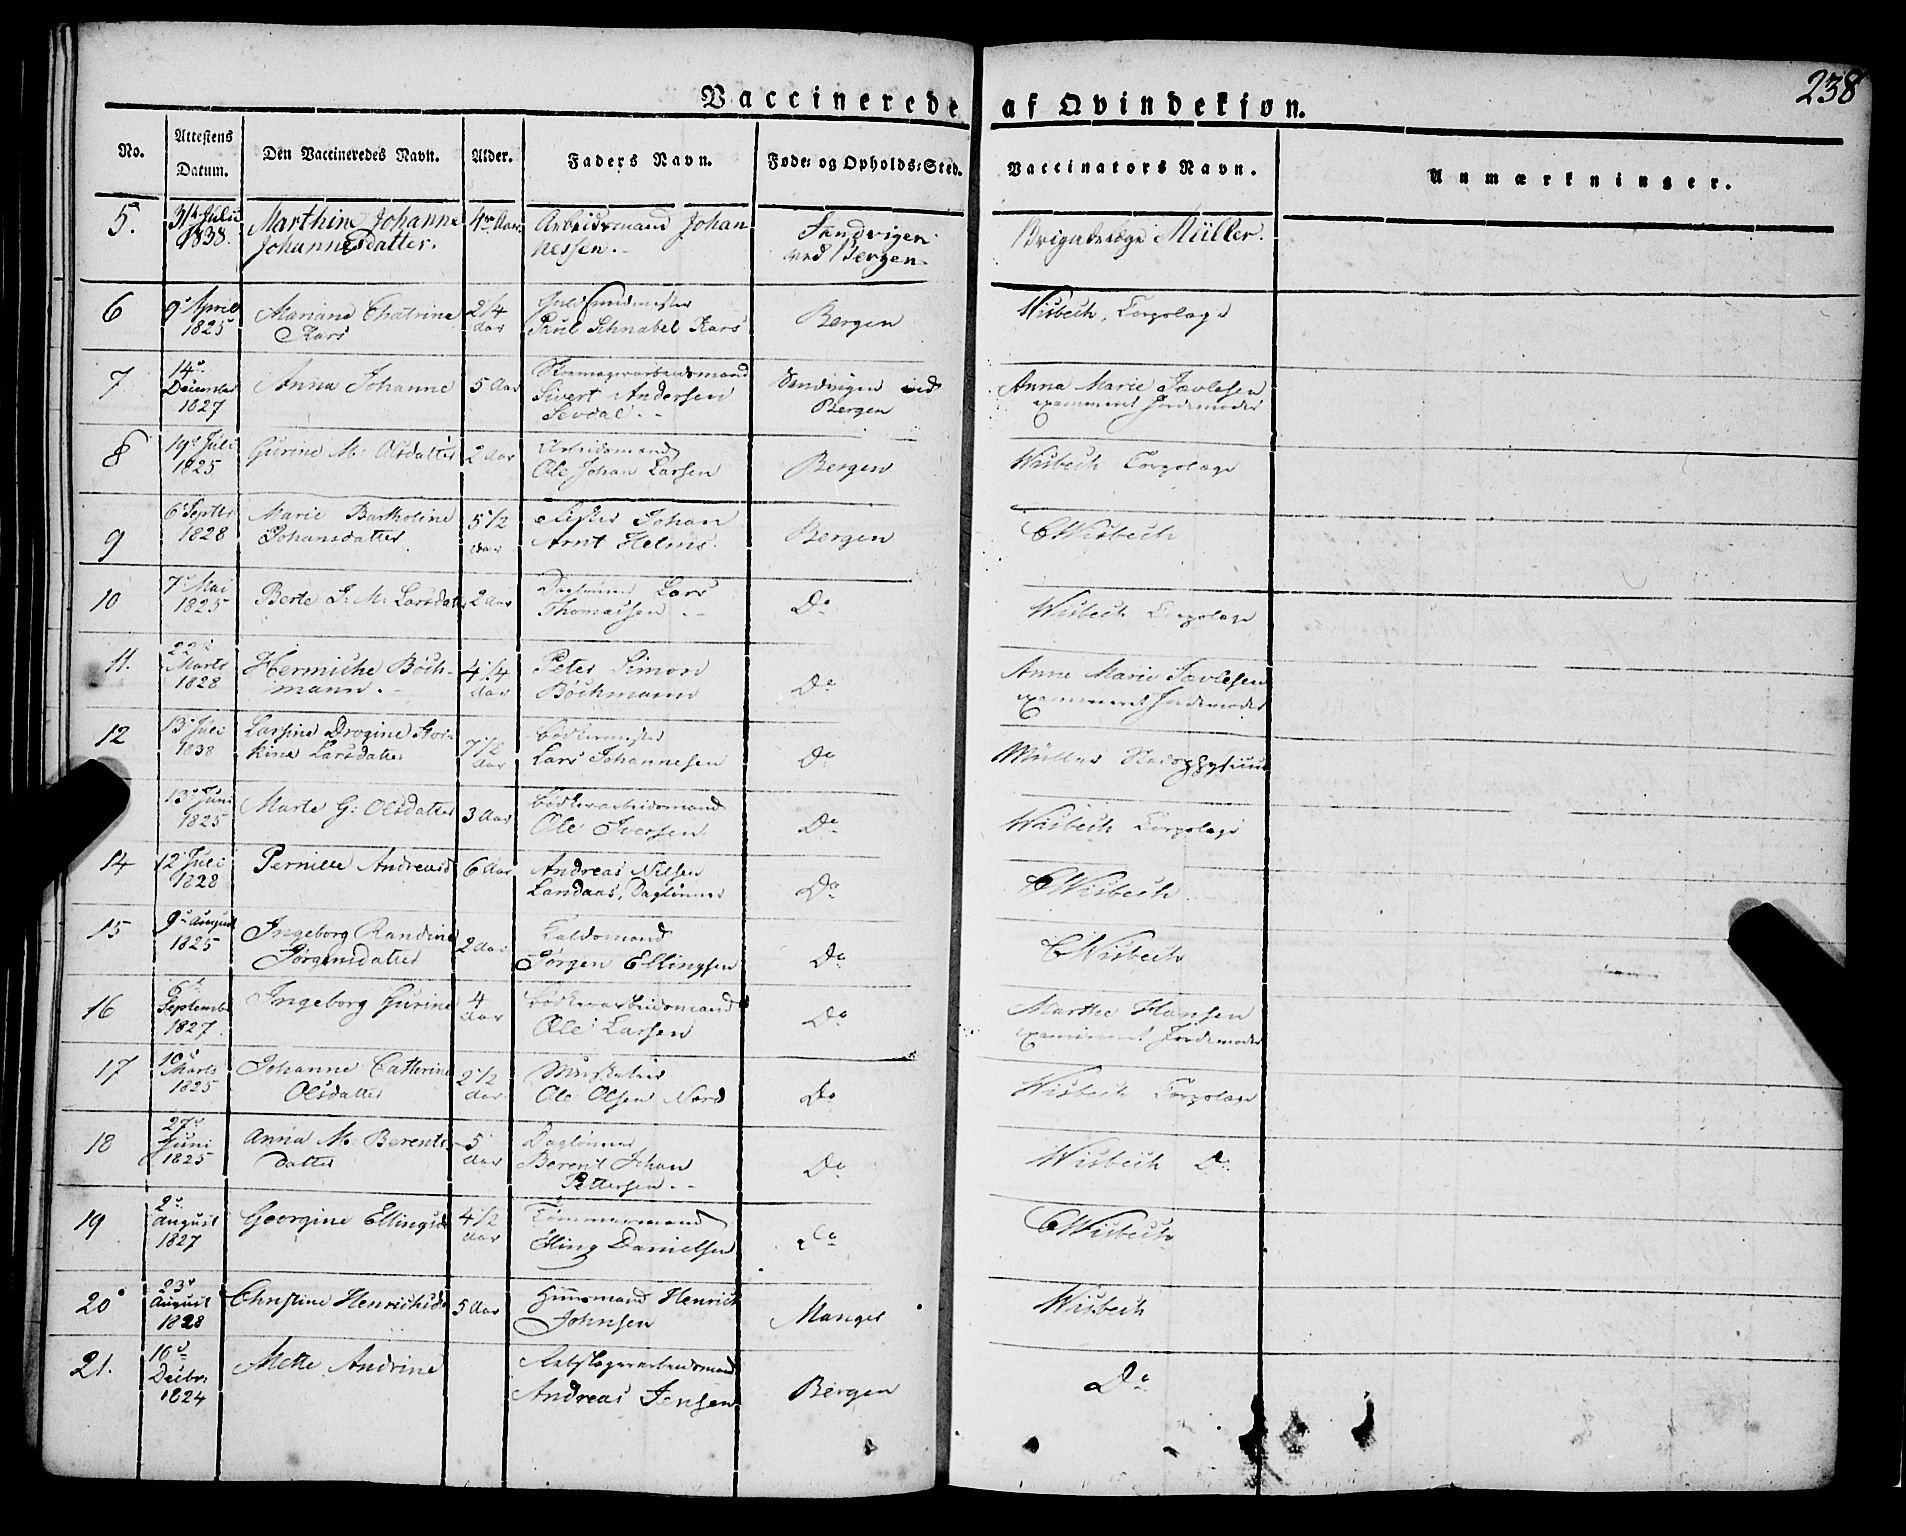 238
Vaccinerede af Qvindekjøn.
No. Attestens Datum. Den Vaccineredes Navn. Alder. Faders Navn. Føde- og Opholds-Sted. Vaccinators Navn. Anmærkninger.
5. 31te Juli 1838. Marthine Johanne Johannesdatter. 4re Aar Arbeidsmand Johannessen. Sandvigen ved Bergen Brigadelæge Müller.
6 9d April 1825 Mariane Chatrine Kars 2 1/4 Aar Guldsmidmester Paul Schnabel Kars Bergen Wisbech, Corpslæge
7 14d December 1827 Anna Johanne 5 Aar Sivert Andersen Sevdal Sandvigen ved Bergen Anna Marie Jævlesen examineret Jordemoder
8 19d Juli 1825 Gurine M. Olsdatter 2 Aar Arbeidsmand Ole Johan Larsen Bergen Wisbech Corpslæge
9 6d Septbr 1828 Marie Bartholine Johansdatter 5 1/2 Aar Johan Arnt Helms. Bergen C Wisbech
10 7d Mai 1825 Berte J. M. Larsdatter 2 Aar Daglønner Lars Thomassen Do Wisbech Corpslæge
11. 22d Marts 1828 Hermiche Böchmann. 4 1/4 Aar Peter Simon Böchmann Do Anne Marie Jævlesen examineret Jordemoder
12 13d Juli 1838 Larsine Drogine Larsdatter 7 1/2 Aar Bødkermester Lars Johannesen Do Müller
13d Juni 1825 Marte G. Olsdatter 3 Aar Bødkerarbeidsmand Ole Iversen Do Wisbech Corpslæge
14 12 Juli 1828 Pernille Andreasd 6 Aar Andreas Nilsen Landaas, Daglønner Do C Wisbech
15 9d August 1825 Ingeborg Randine Jørgensdatter 2 Aar Jørgen Ellingsen Do C Wisbech
16 6d September 1827. Ingeborg Gurine 4 Aar Bødkerarbeidsmand Ole Larsen Do Marthe Hansen examineret Jordemoder
17 10d Marts 1825 Johanne Cathrine Olsdatter 2 1/2 Aar Musketeer Ole Olsen Nord Do Wisbech Corpslæge
18 27d Juni 1825 Anna M. Berentsdatter 5 Aar Daglønner Berent Johan Pettersen Do Wisbech Do
19 2d August 1827 Georgine Ellingsd 4 1/2 Aar Tømmermand Elling Danielsen Do C Wisbech
20 23d August 1828 Christine Henrichsd 5 Aar Huusmand Henrich Johnsen Manger Wisbech
21. 16d Decbr 1824 Mette Andrine Andreas Jensen Bergen Do